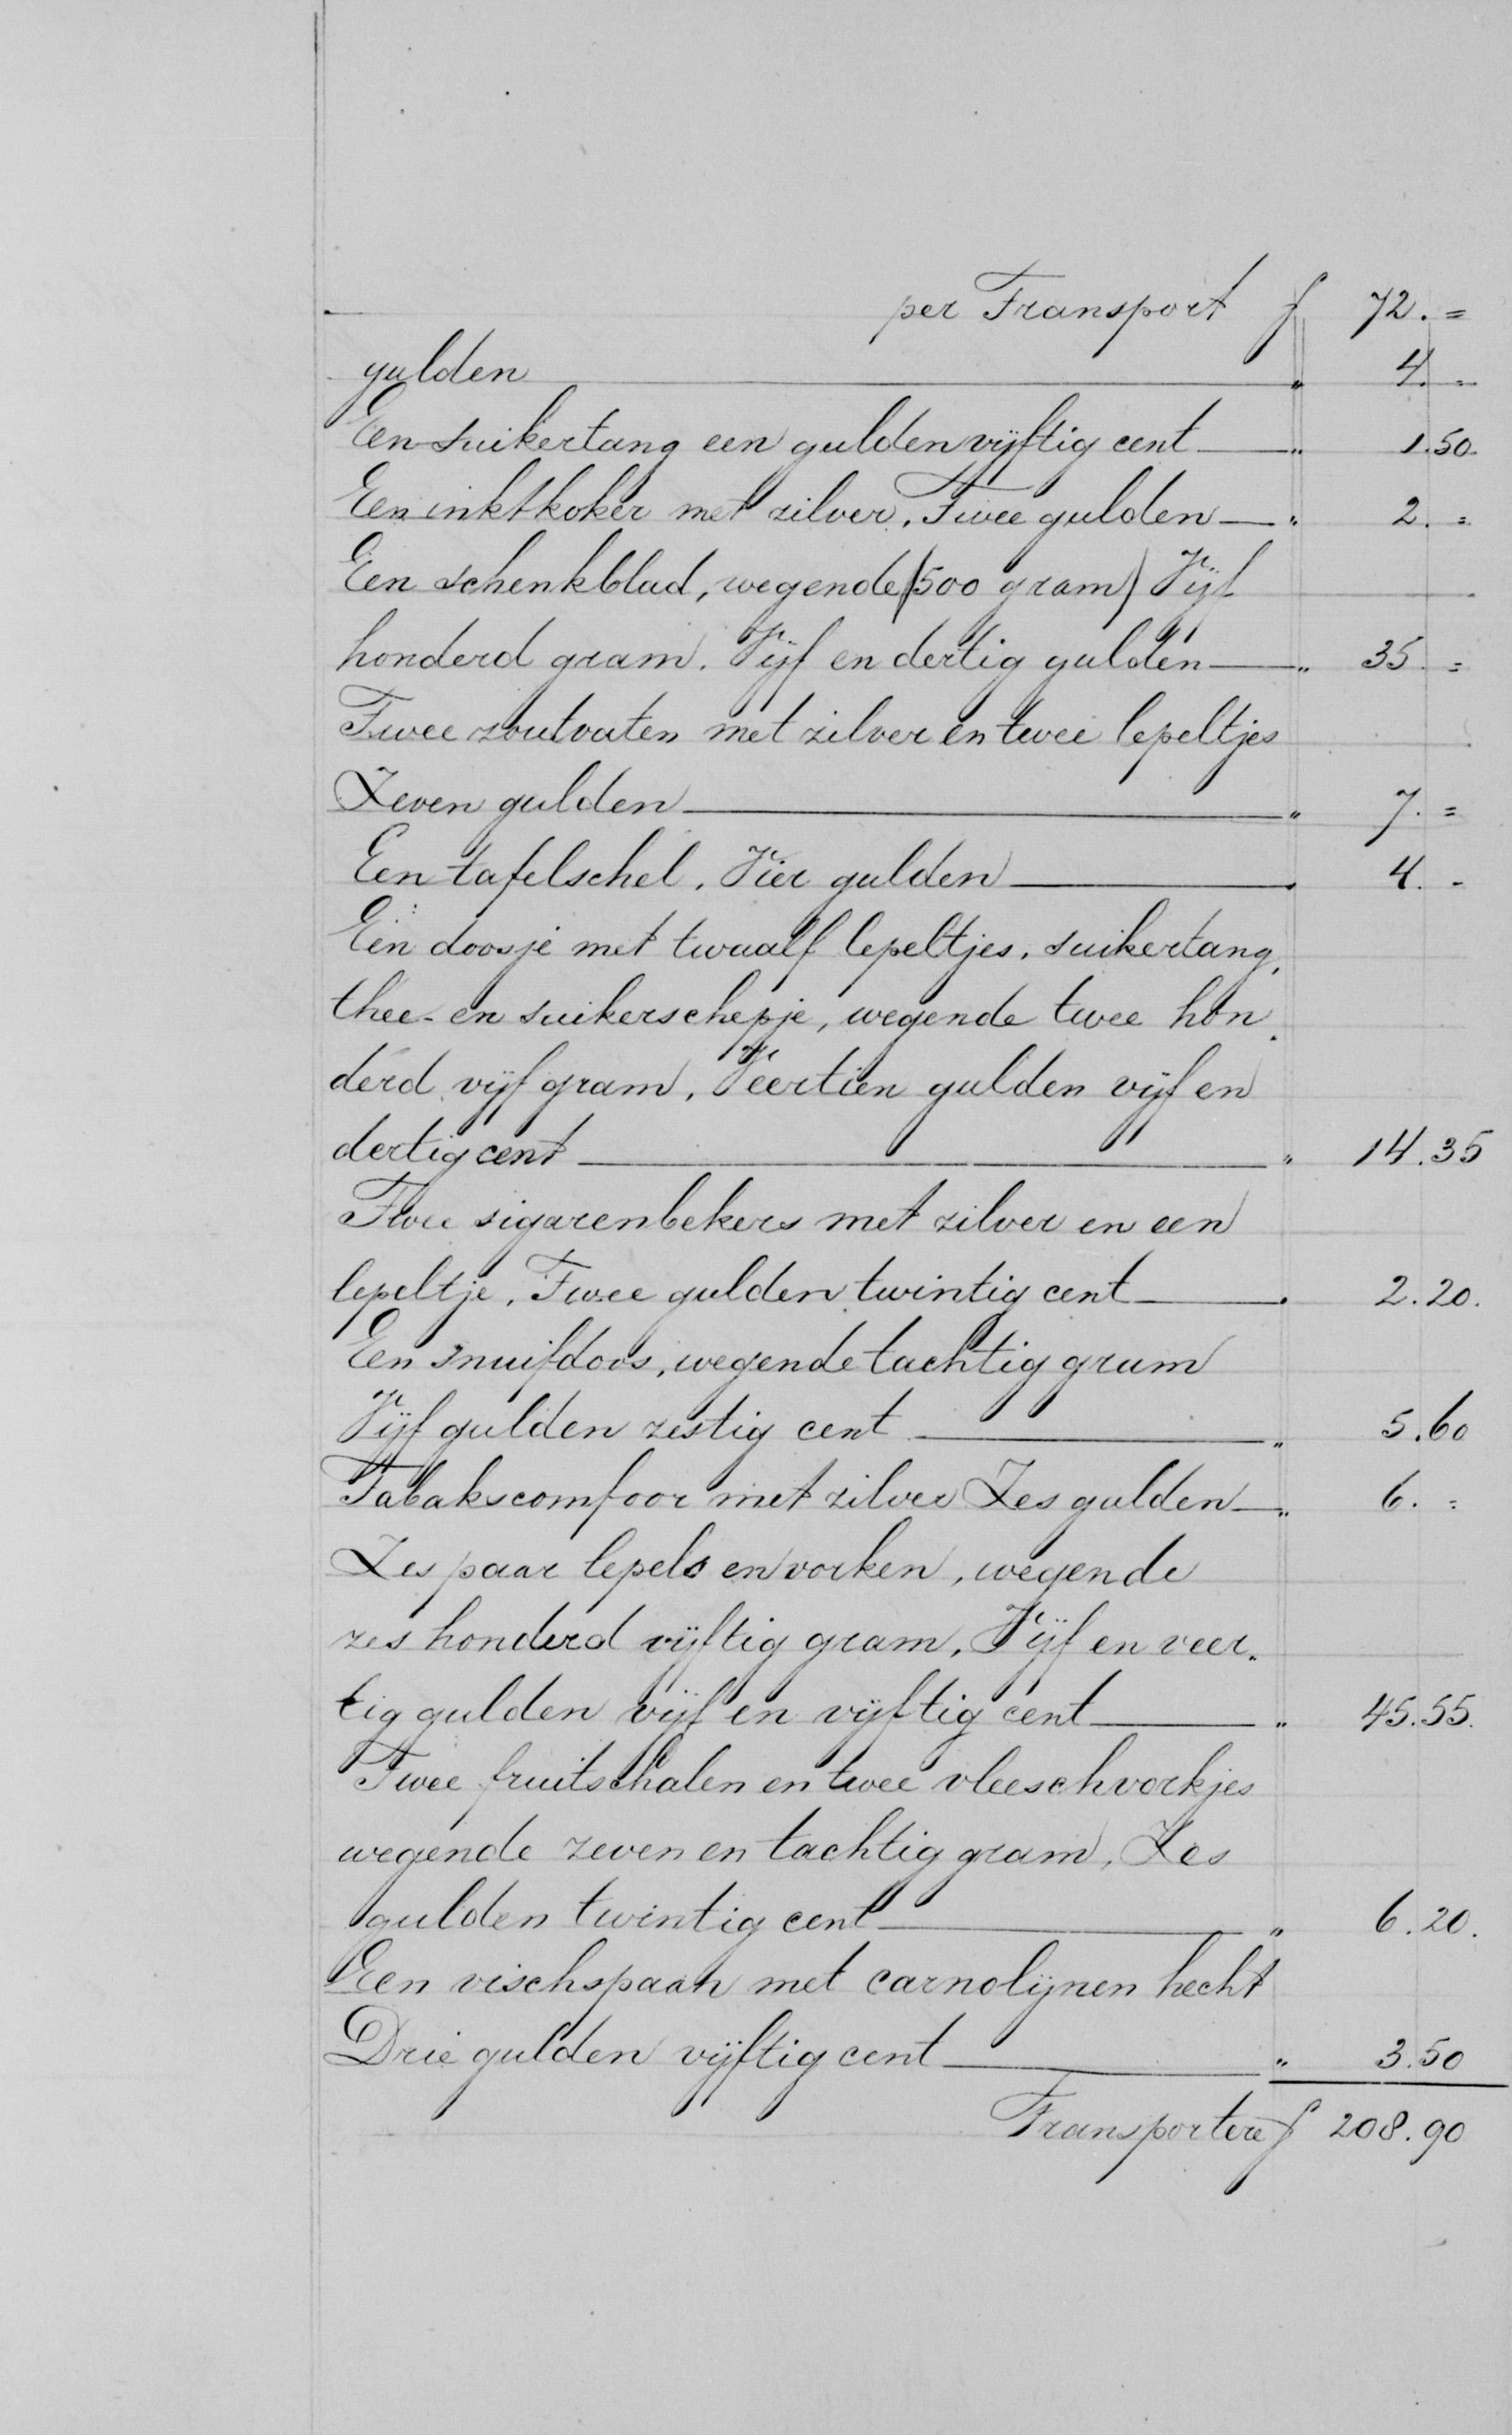 per Transport f 72. =
gulden " 4. =
Een suikertang een gulden vijftig cent " 1.50.
Een inktkoker met zilver. Twee gulden " 2. =
Een schenkblad, wegende (500 gram) Vijf
honderd gram. Vijf en dertig gulden " 35. =
Twee zoutvaten met zilver en twee lepeltjes
Zeven gulden " 7. =
Een tafelschel. Vier gulden " 4. -
Eén doosje met twaalf lepeltjes, suikertang,
thee- en suikerschepje, wegende twee hon„
derd vijf gram. Veertien gulden vijf en
dertig cent " 14.35
Twee sigarenbekers met zilver en een
lepeltje. Twee gulden twintig cent " 2.20.
Een snuifdoos, wegende tachtig gram
Vijf gulden zestig cent " 5.60
Tabakscomfoor met zilver Zes gulden " 6. =
Zes paar lepels en vorken, wegende
zes honderd vijftig gram. Vijf en veer„
tig gulden vijf en vijftig cent " 45.55.
Twee fruitschalen en twee vleeschvorkjes
wegende zeven en tachtig gram. Zes
gulden twintig cent " 6.20.
Een vischspaan met carnolijnen hecht
Drie gulden vijftig cent " 3.50
Transportere f 208.90